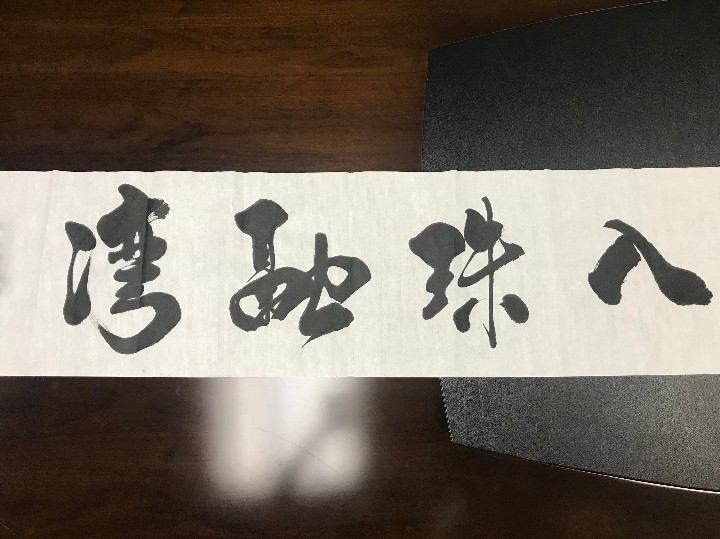 入珠融湾